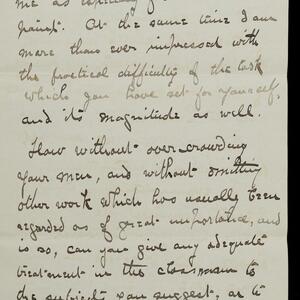 me as especially
point. At the same time I am
more than ever impressed with
the practical difficulty of the task
which you have set for yourself,
and its magnitude as well.
How without over-crowding
your men, and without omitting
other work which has usually been
regarded as of great importance, and
is so, can you give any adequate
treatment in the classroom to
the subjects you suggest, or to